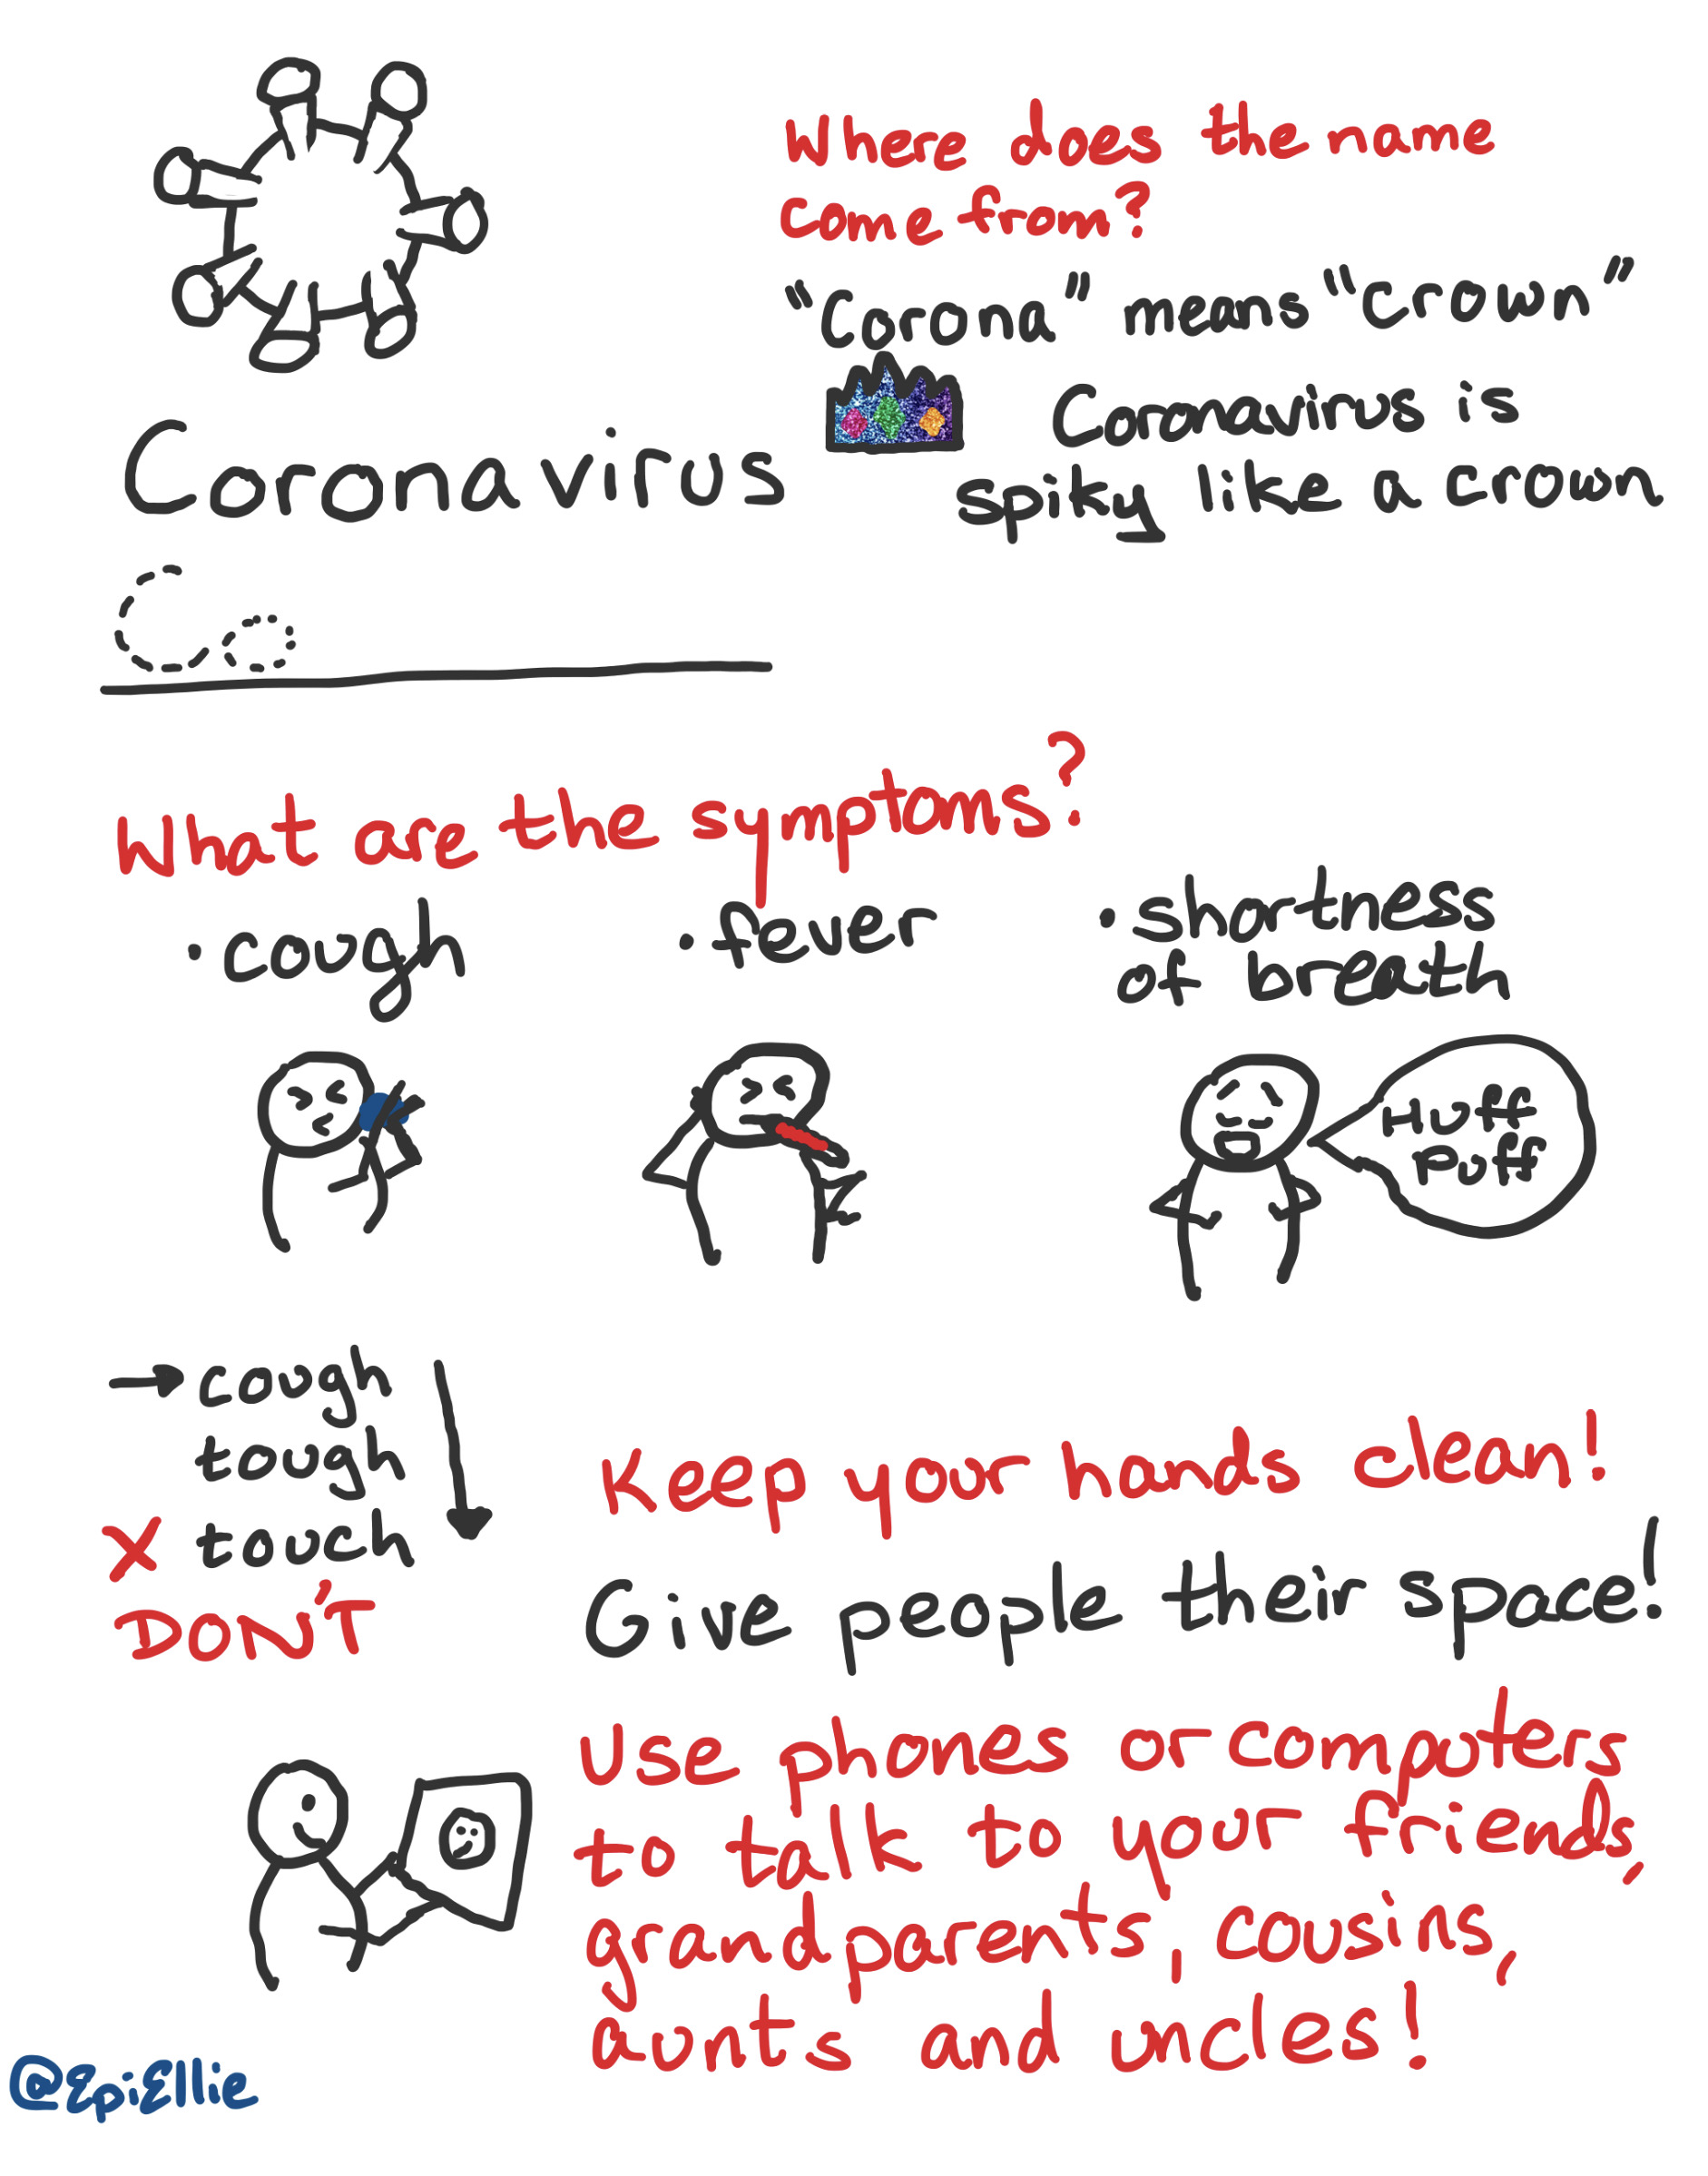 Where does the name
come from?
"Corona" means "crown"
Coronavirus is
spiky like a crown
Coronavirus
Co
What are the symptoms?
• cough
• fever
• shortness
of breath
Huff
Puff
→ cough
tough
X touch
DON'T
Keep your hands clean!
Give people their space!
Use phones or computers
to talk to your friends,
grandparents, cousins,
aunts and uncles!
@EpiEllie